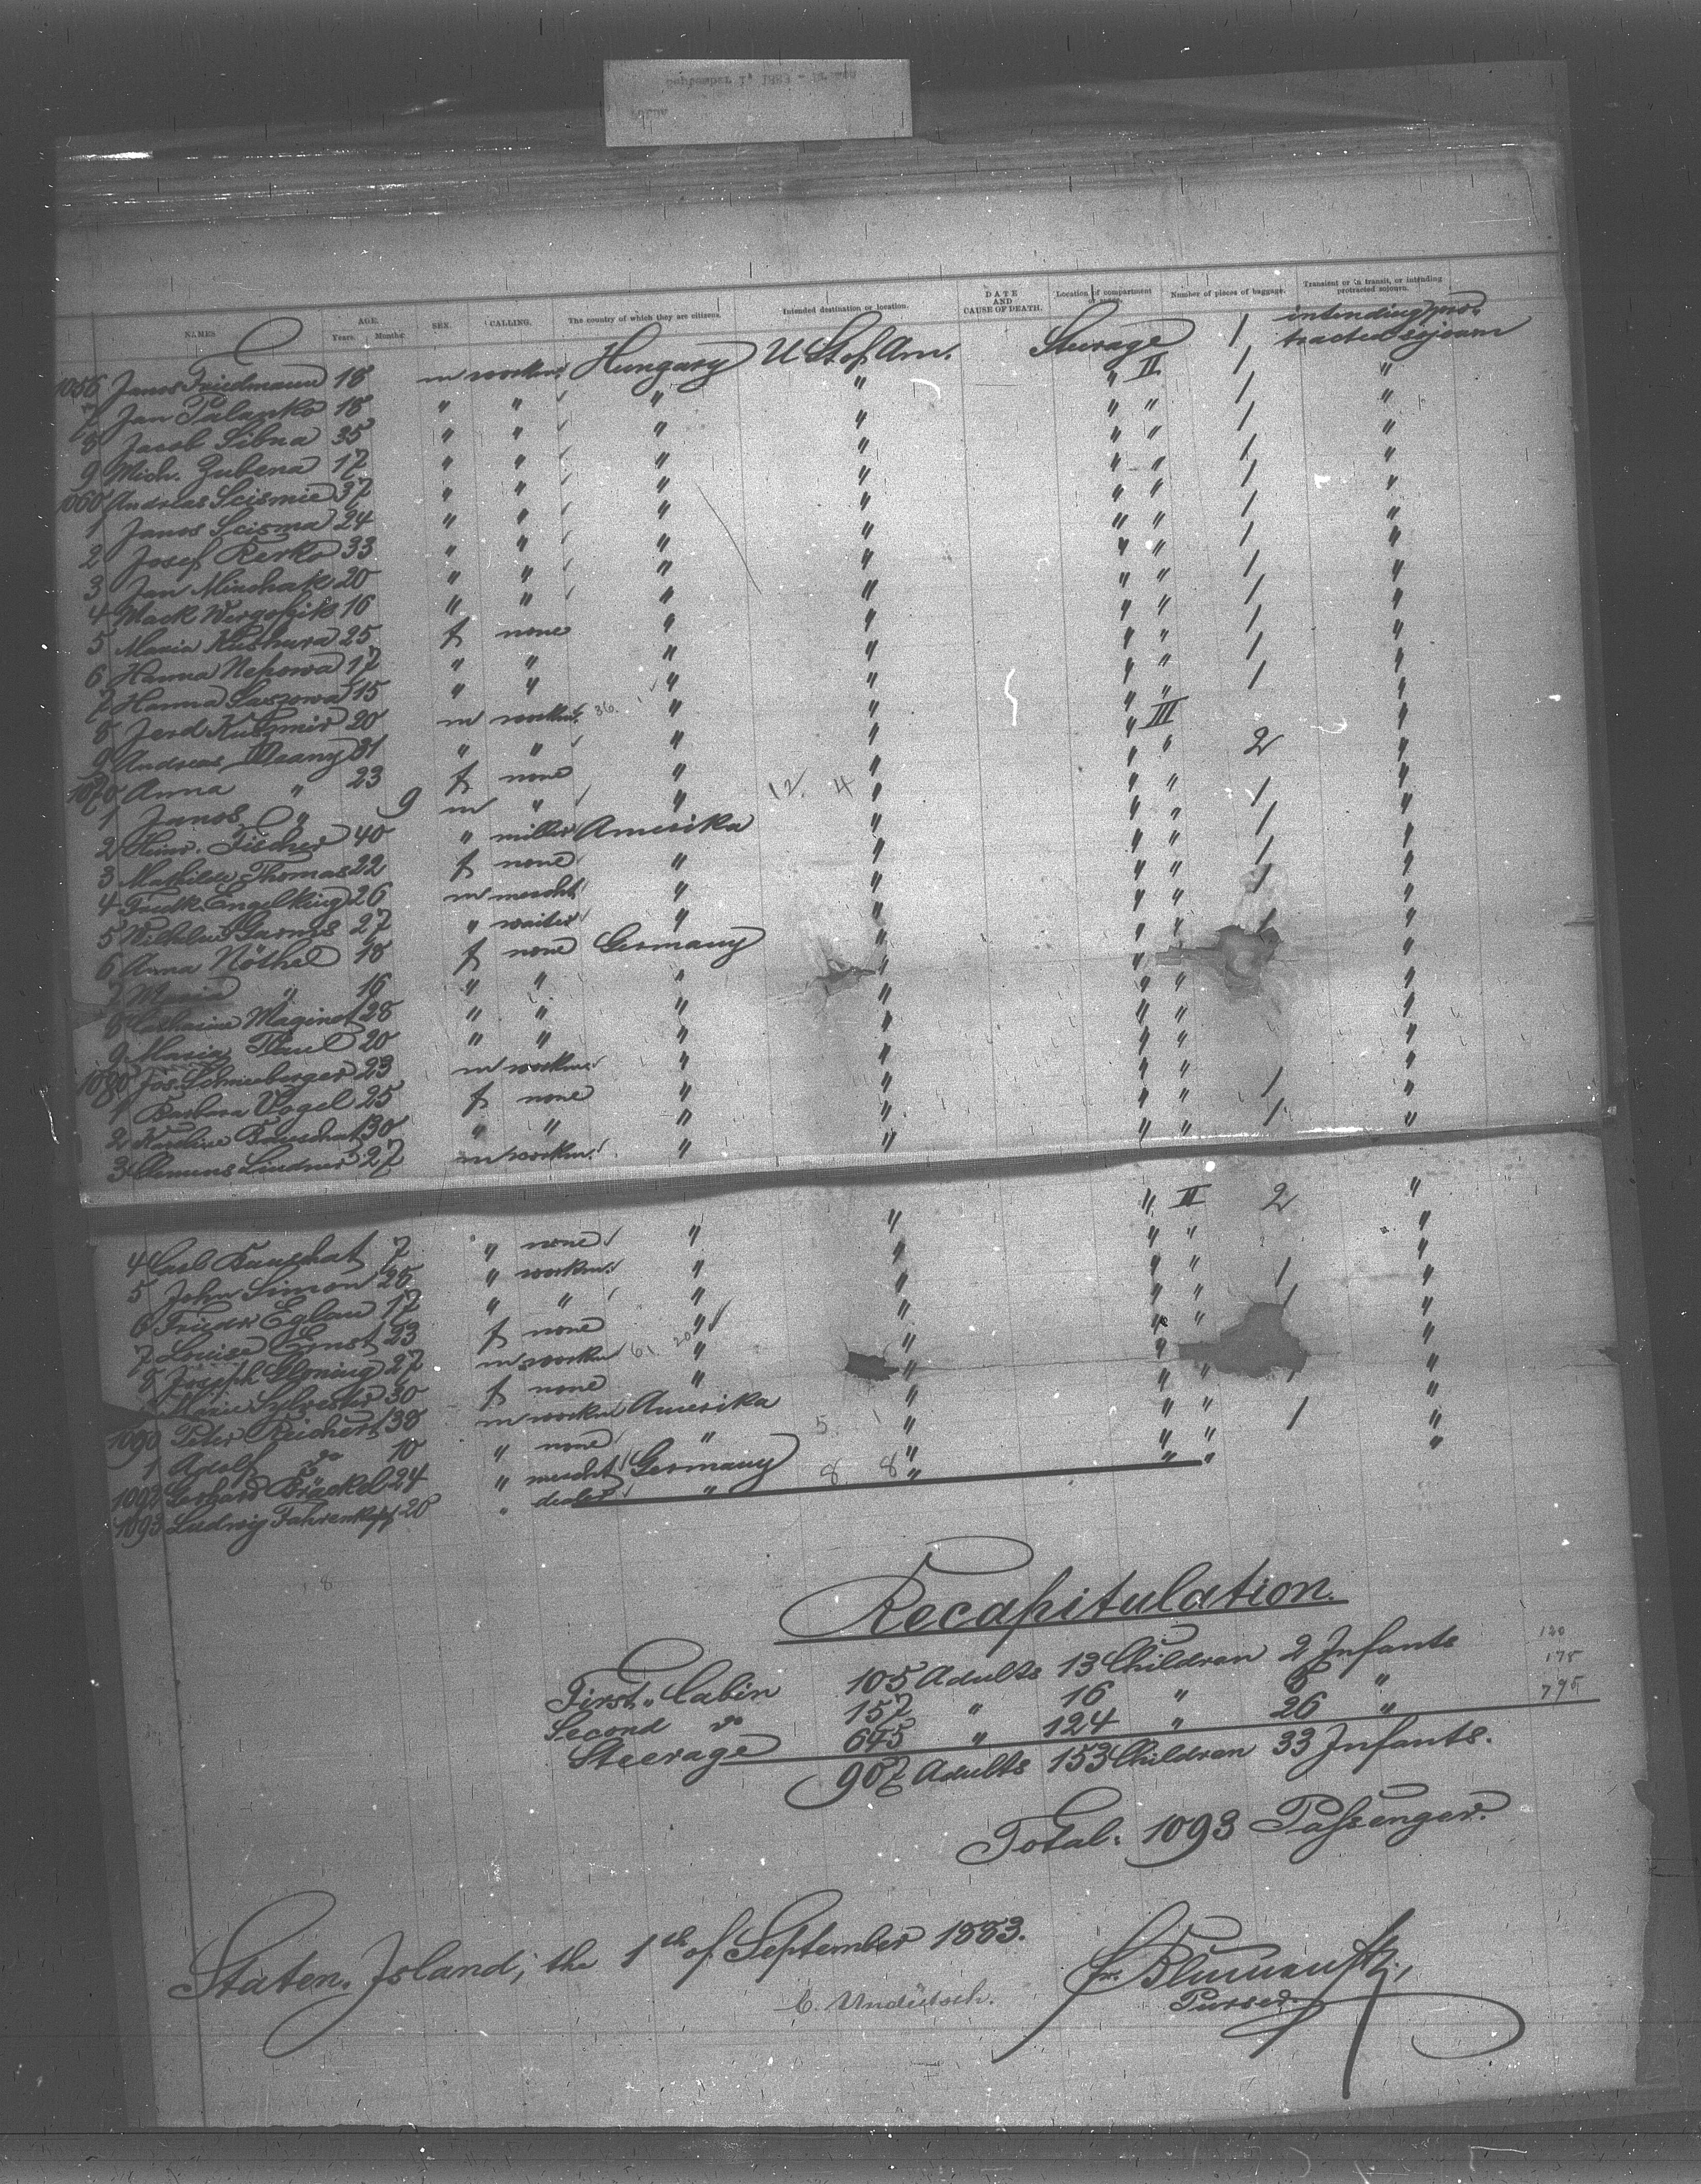 NAMES AGE. Years. Months. SEX. CALLING. The country of which they are citizens. Intended destination or location. DATE AND CAUSE OF DEATH. Location of compartment or space. Number of pieces of baggage. Transient or in transit, or intending protracted sojourn.
1056 Janos Friedmann 18 m workm. Hungary U. St. of Am. Steerage II 1 intending pro-tracted sojourn
7 Jan Palanko 18 " " " " " " 1 "
8 Jacob Sibna 35 " " " " " " 1 "
9 Mich. Zubena 17 " " " " " " 1 "
1060 Andreas Scismie 37 " " " " " " 1 "
1 Janos Scisma 24 " " " " " " 1 "
2 Josef Rerko 33 " " " " " " 1 "
3 Jan Minshak 20 " " " " " " 1 "
4 Mack 16 " " " " " " 1 "
5 Maria Kushura 25 f none " " " " 1 "
6 Hanna Nepowa 17 " " " " " " 1 "
7 Hanna Saszowa 15 " " " " " " 1 "
8 Ferd Kuszmir 20 m workm. " " " III "
9 Andreas Meany 31 " " " " " " 2 "
1070 Anna " 23 f none " " " " "
1 Janos " 9 m " " " " " 1 "
2 Heinr. Fischer 40 " miller Amerika " " " 1 "
3 Mathilde Thomas 22 f none " " " " 1 "
4 Fredk. Engelking 26 m mercht " " " " 1 "
5 Wilhelm Garms 27 " waiter " " " " 1 "
6 Anna Nöthel 18 f none Germany " " "
7 Maria " 16 " " " " " " "
8 Catharine Maginot 28 " " " " " " "
9 Maria Paul 20 " " " " " " "
1080 Jos. Schneeberger 23 m workm. " " " " "
1 Barbara Vogel 25 f none " " " " 1 "
2 Karoline Bauschat 30 " " " " " " 1 "
3 Clemens Lindner 27 m workm. " " " " "
4 Carl Bauschat 7 " none " " " II 2 "
5 John Simon 28 " workm. " " " " "
6 Friedr Eglau 17 " " " " " " 1 "
7 Louise Ernst 23 f none " " " " "
8 Joseph Gloning 27 m workm " " " "
Marie Sylvester 30 f none " " " " "
1090 Peter Reichert 38 m workm Amerika " " " 1 "
1 Adolf do 10 " none " " " " "
1092 Gerhard Bräckel 24 " mercht Germany " " " "
1093 Ludwig Fahrenkopf 20 " dealer " " " "
Recapitulation.
First. Cabin 105 Adults 13 Children 2 Infants 120
Second do 157 " 16 " " 175
Steerage 645 " 124 " 26 " 795
907 Adults 153 Children 33 Infants.
Total: 1093 Passenger.
Staten. Island; the 1th of September 1883.
Purser.